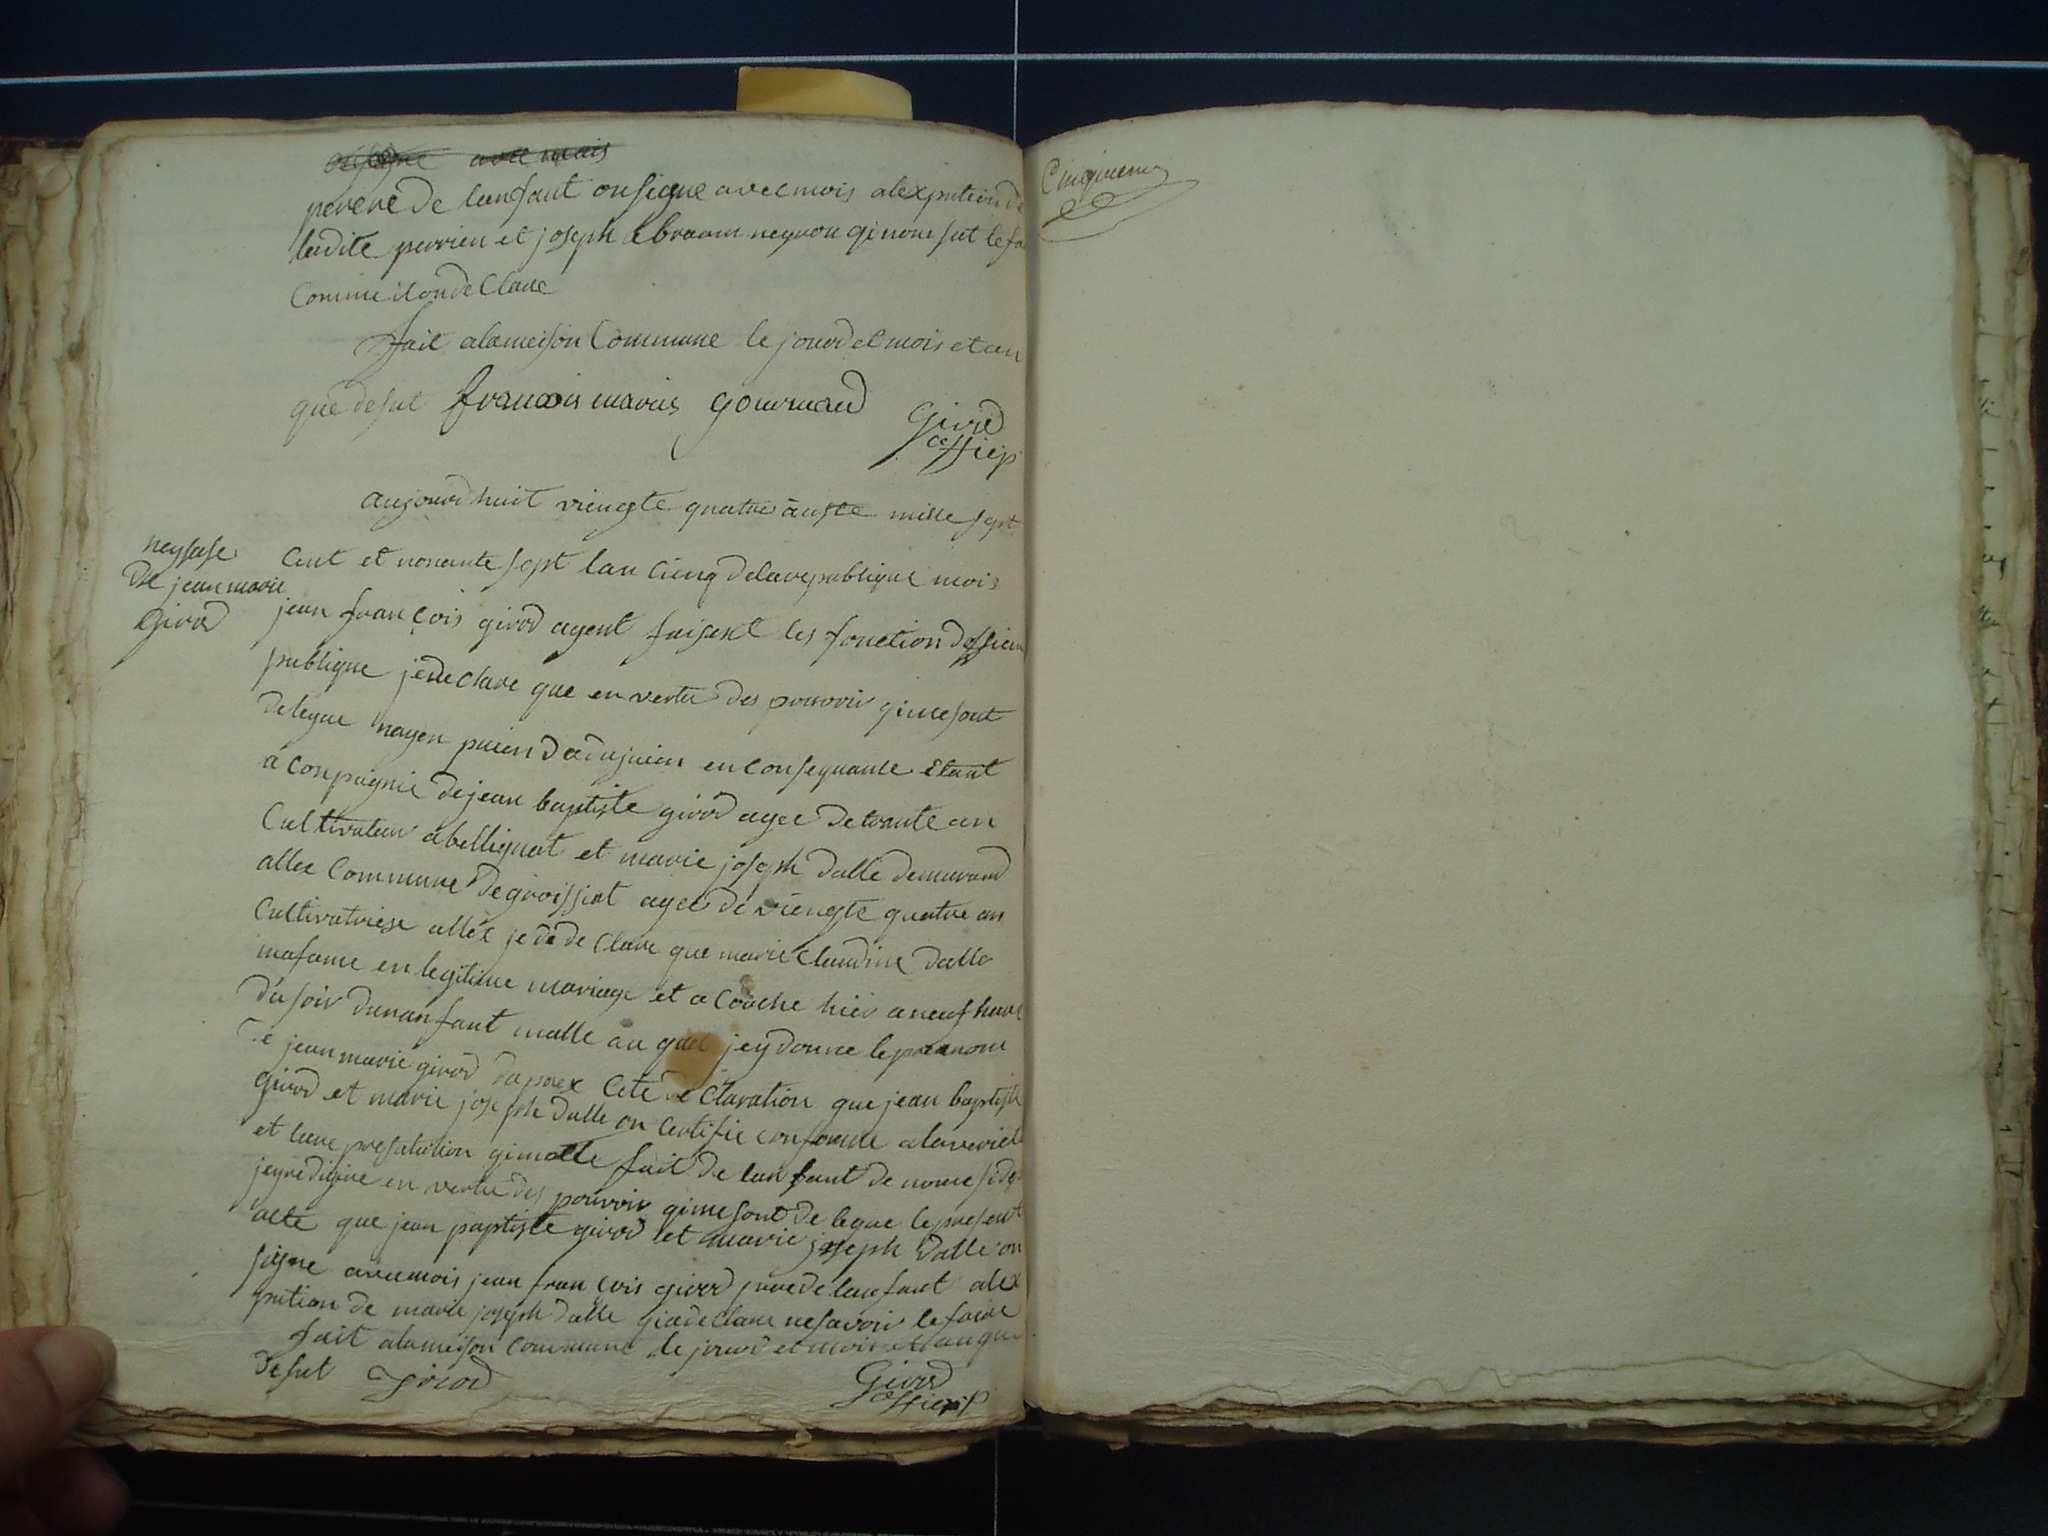 avec mois
perere de lanfant on signe avec mois alexption de
ladite perrien et joseph abraam neyron qi nous sut le fa
Comme il on de Clare
fait alameison Commune le jourd el mois et an
que desut francois marie gournand
Girod
offiep
aujourd huit viengte quatre auste mille sept
Cent et nonante sept lan Cienq dela republique mois
neysase
de jean marie
Girod
jean françois girod agent faisent les fonction doffien
publique je de Clare que en vertu des pouvoir qi me sont
delegue nayen puien dadujuien en Consequanse étant
a Conpagnie de jean baptiste girod agee de trante an
Cultivateur abellignat et marie joseph dalle demurand
allex Commune de groissiat agee de viengte quatre an
Cultivatriese allex je de de Clare que marie Claudine dalle
mafame en legitime mariage et a Couche hier a neuf hure
du soir dunanfant malle au quel jey donne le prenom
de jean marie girod dapres Cete de Claration que jean baptiste
girod et marie joseph dalle on Certifie conforme alaverite
et lure presatation qi motte fait de lanfant de nome side
jey redigire en vertu des pouvoir qi me sont de legue le presant
acte que jean paptiste girod et marie joseph dalle on
signe avec mois jean fran çois girod pere de lanfant alex
ption de marie joseph dalle qi a de Clare ne savoir le faire
fait alameison Commune le jourd et mois et lan que
desut Girod
Girod
offiep
Cinquieme